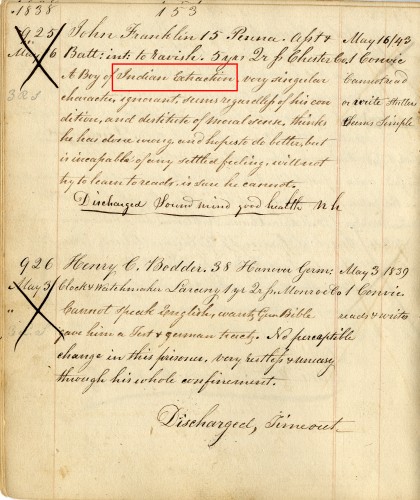 1838 153
925 John Franklin 15 Penna. Aslt & May 16/43
May 16 Batt: int: to ravish. 5 yrs 2r fr Chester Co. 1 Convic
A Boy of Indian Extraction very singular Cannot read
character, ignorant, seems regardless of his con or write Stutters
dition, and destitute of moral sense. thinks Seems Simple
he has done wrong and hopes to do better, but
is incapable of any settled feeling, will not
try to learn to read, is sure he cannot.
Discharged Sound mind good health
926 Henry C. Bodder. 38 Hanover Germ: May 3 1839
May 3 Clock & Watchmaker Larceny 1 yr 2r fr Monroe Co 1 Convic
" Cannot speak English, wants Ger: Bible reads & writes
gave him a Test & german tracts. No perceptible
change in this prisoner, very restless & uneasy
through his whole confinement.
Discharged, Time out